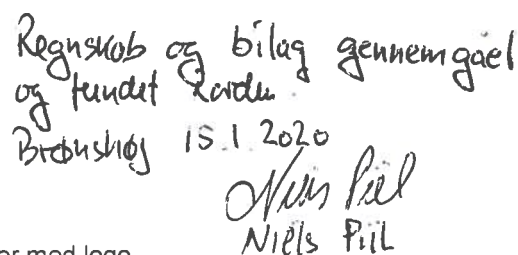 Regnskob og bilag gennemgået
og fundet korden
Brønshøj 15.1.2020
Niels Piil
Niels Piil